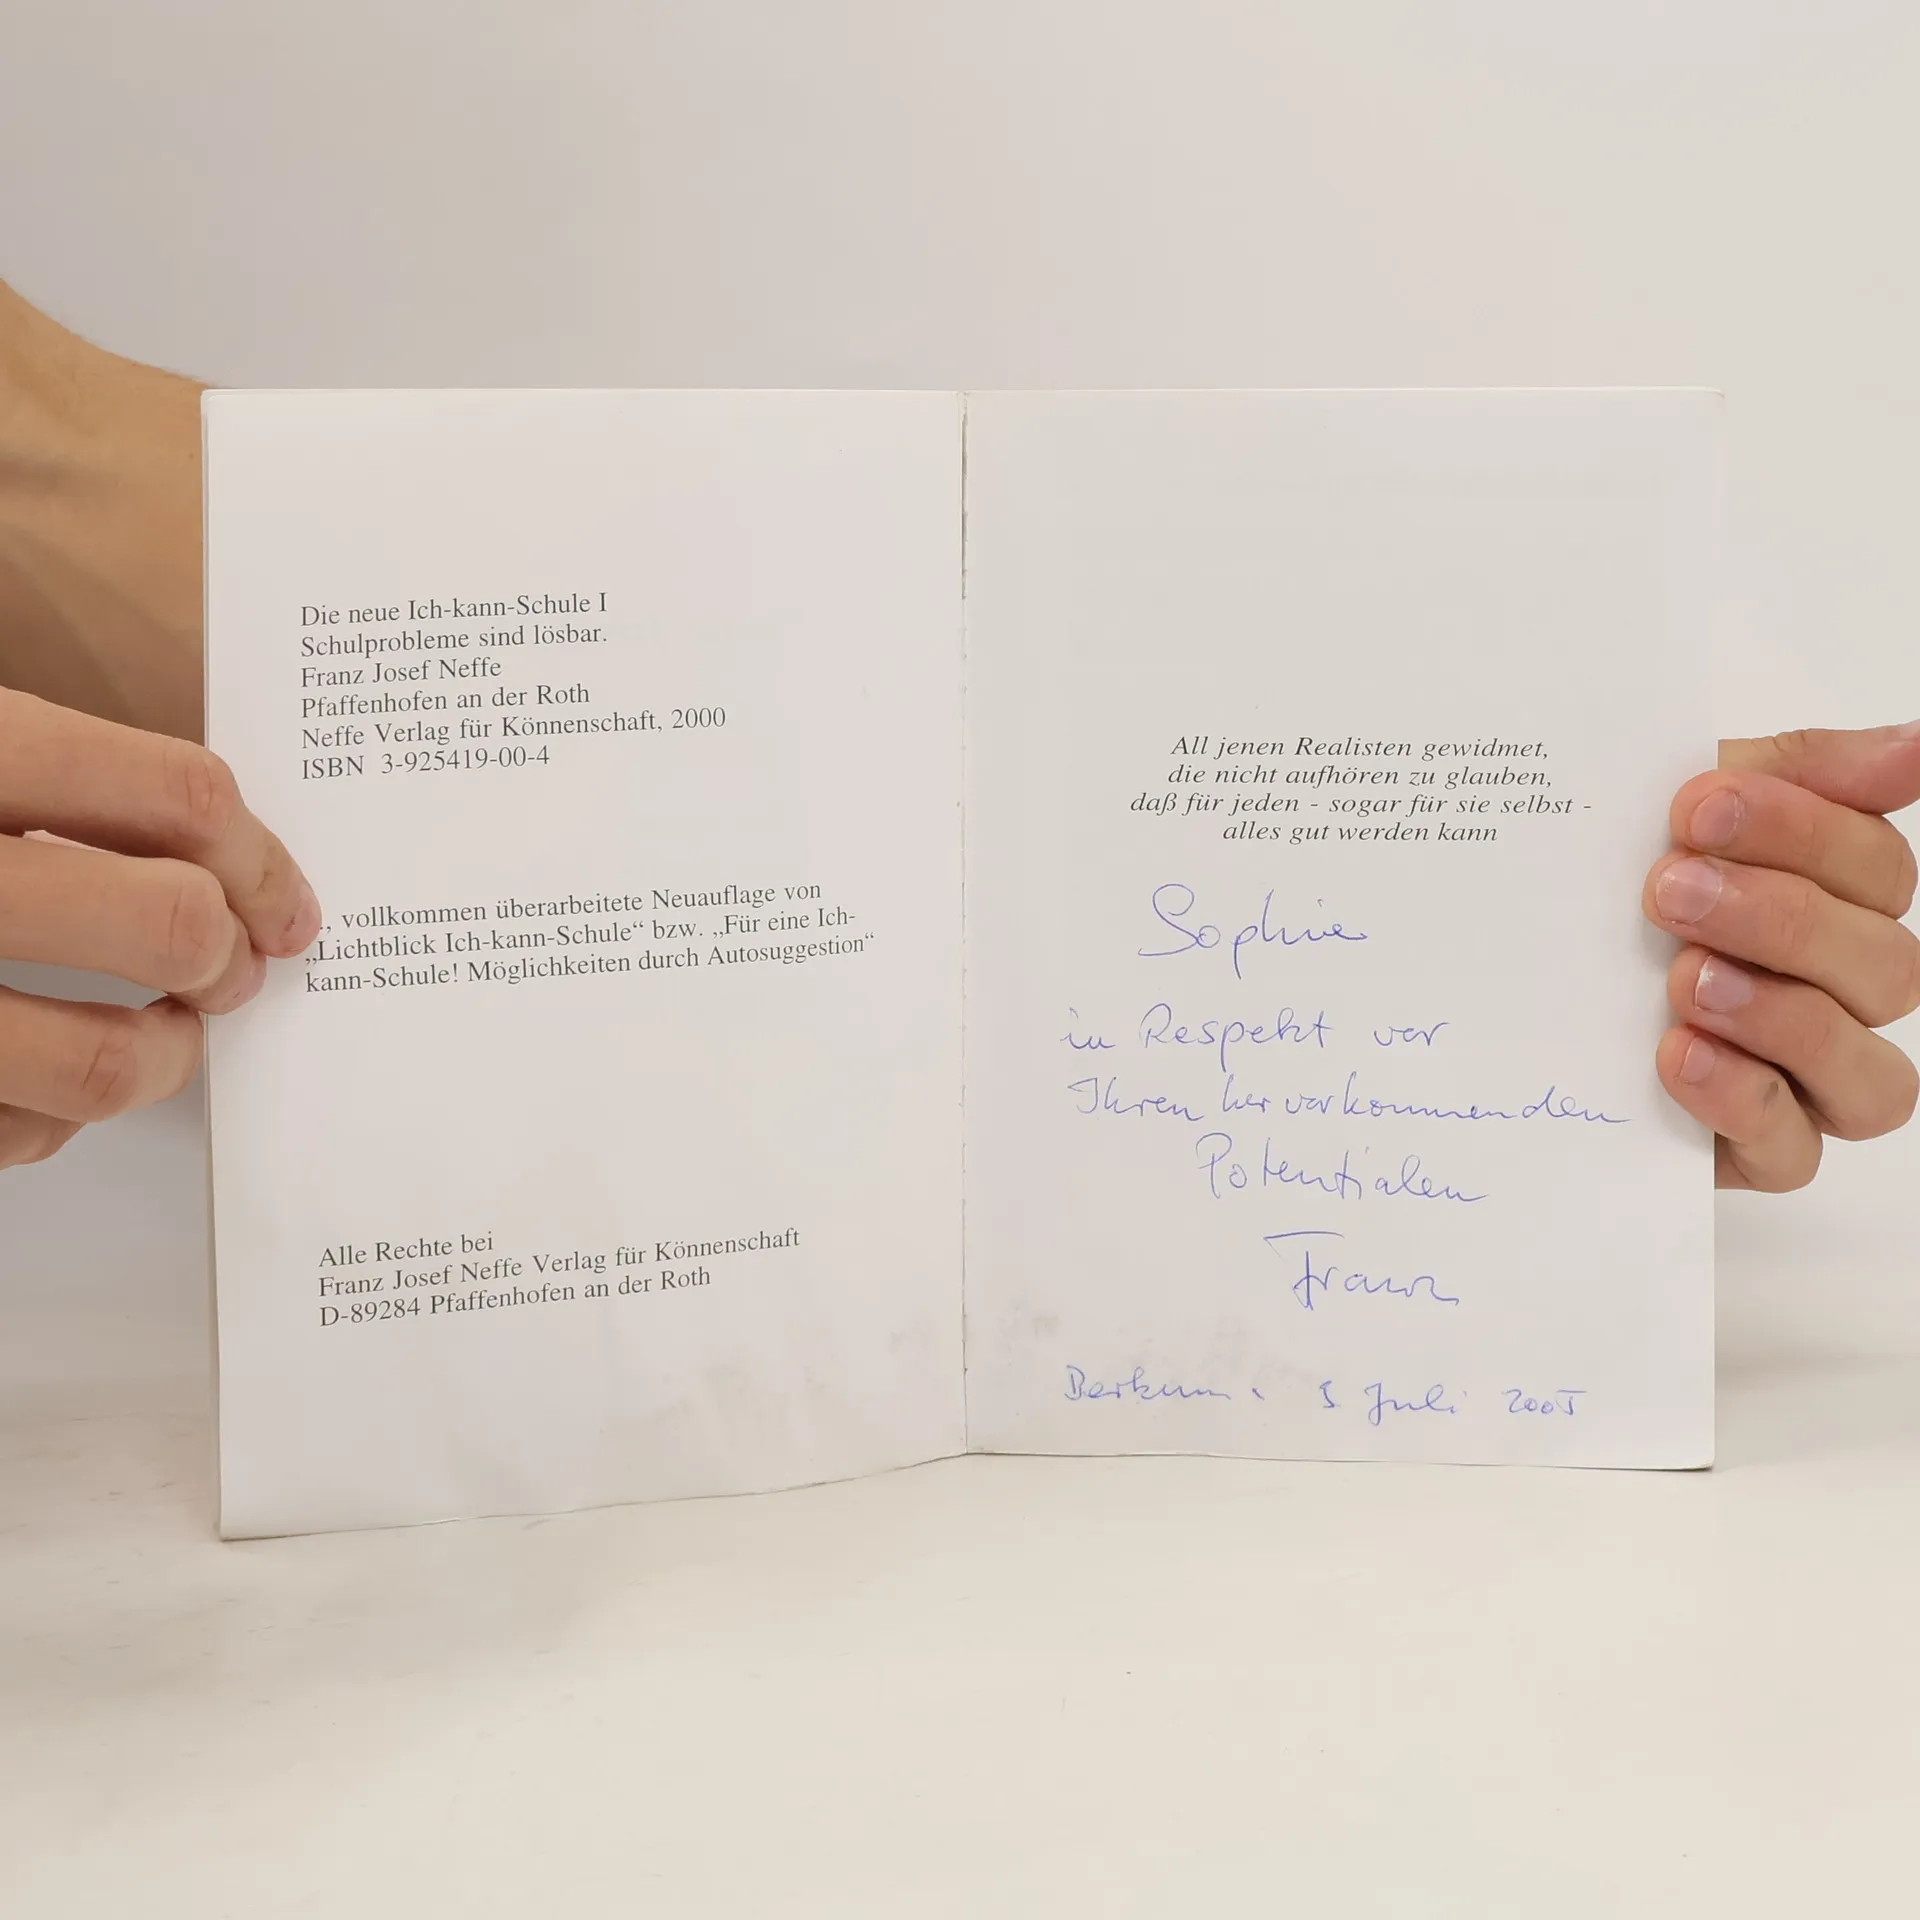 Die neue Ich-kann-Schule I
Schulprobleme sind lösbar.
Franz Josef Neffe
Pfaffenhofen an der Roth
Neffe Verlag für Könnenschaft, 2000
ISBN 3-925419-00-4
., vollkommen überarbeitete Neuauflage von
„Lichtblick Ich-kann-Schule“ bzw. „Für eine Ich-
kann-Schule! Möglichkeiten durch Autosuggestion“
Alle Rechte bei
Franz Josef Neffe Verlag für Könnenschaft
D-89284 Pfaffenhofen an der Roth
All jenen Realisten gewidmet,
die nicht aufhören zu glauben,
daß für jeden - sogar für sie selbst -
alles gut werden kann
Sophie
in Respekt vor
Ihren hervorkommenden
Potentialen
Franz
Juli 2005